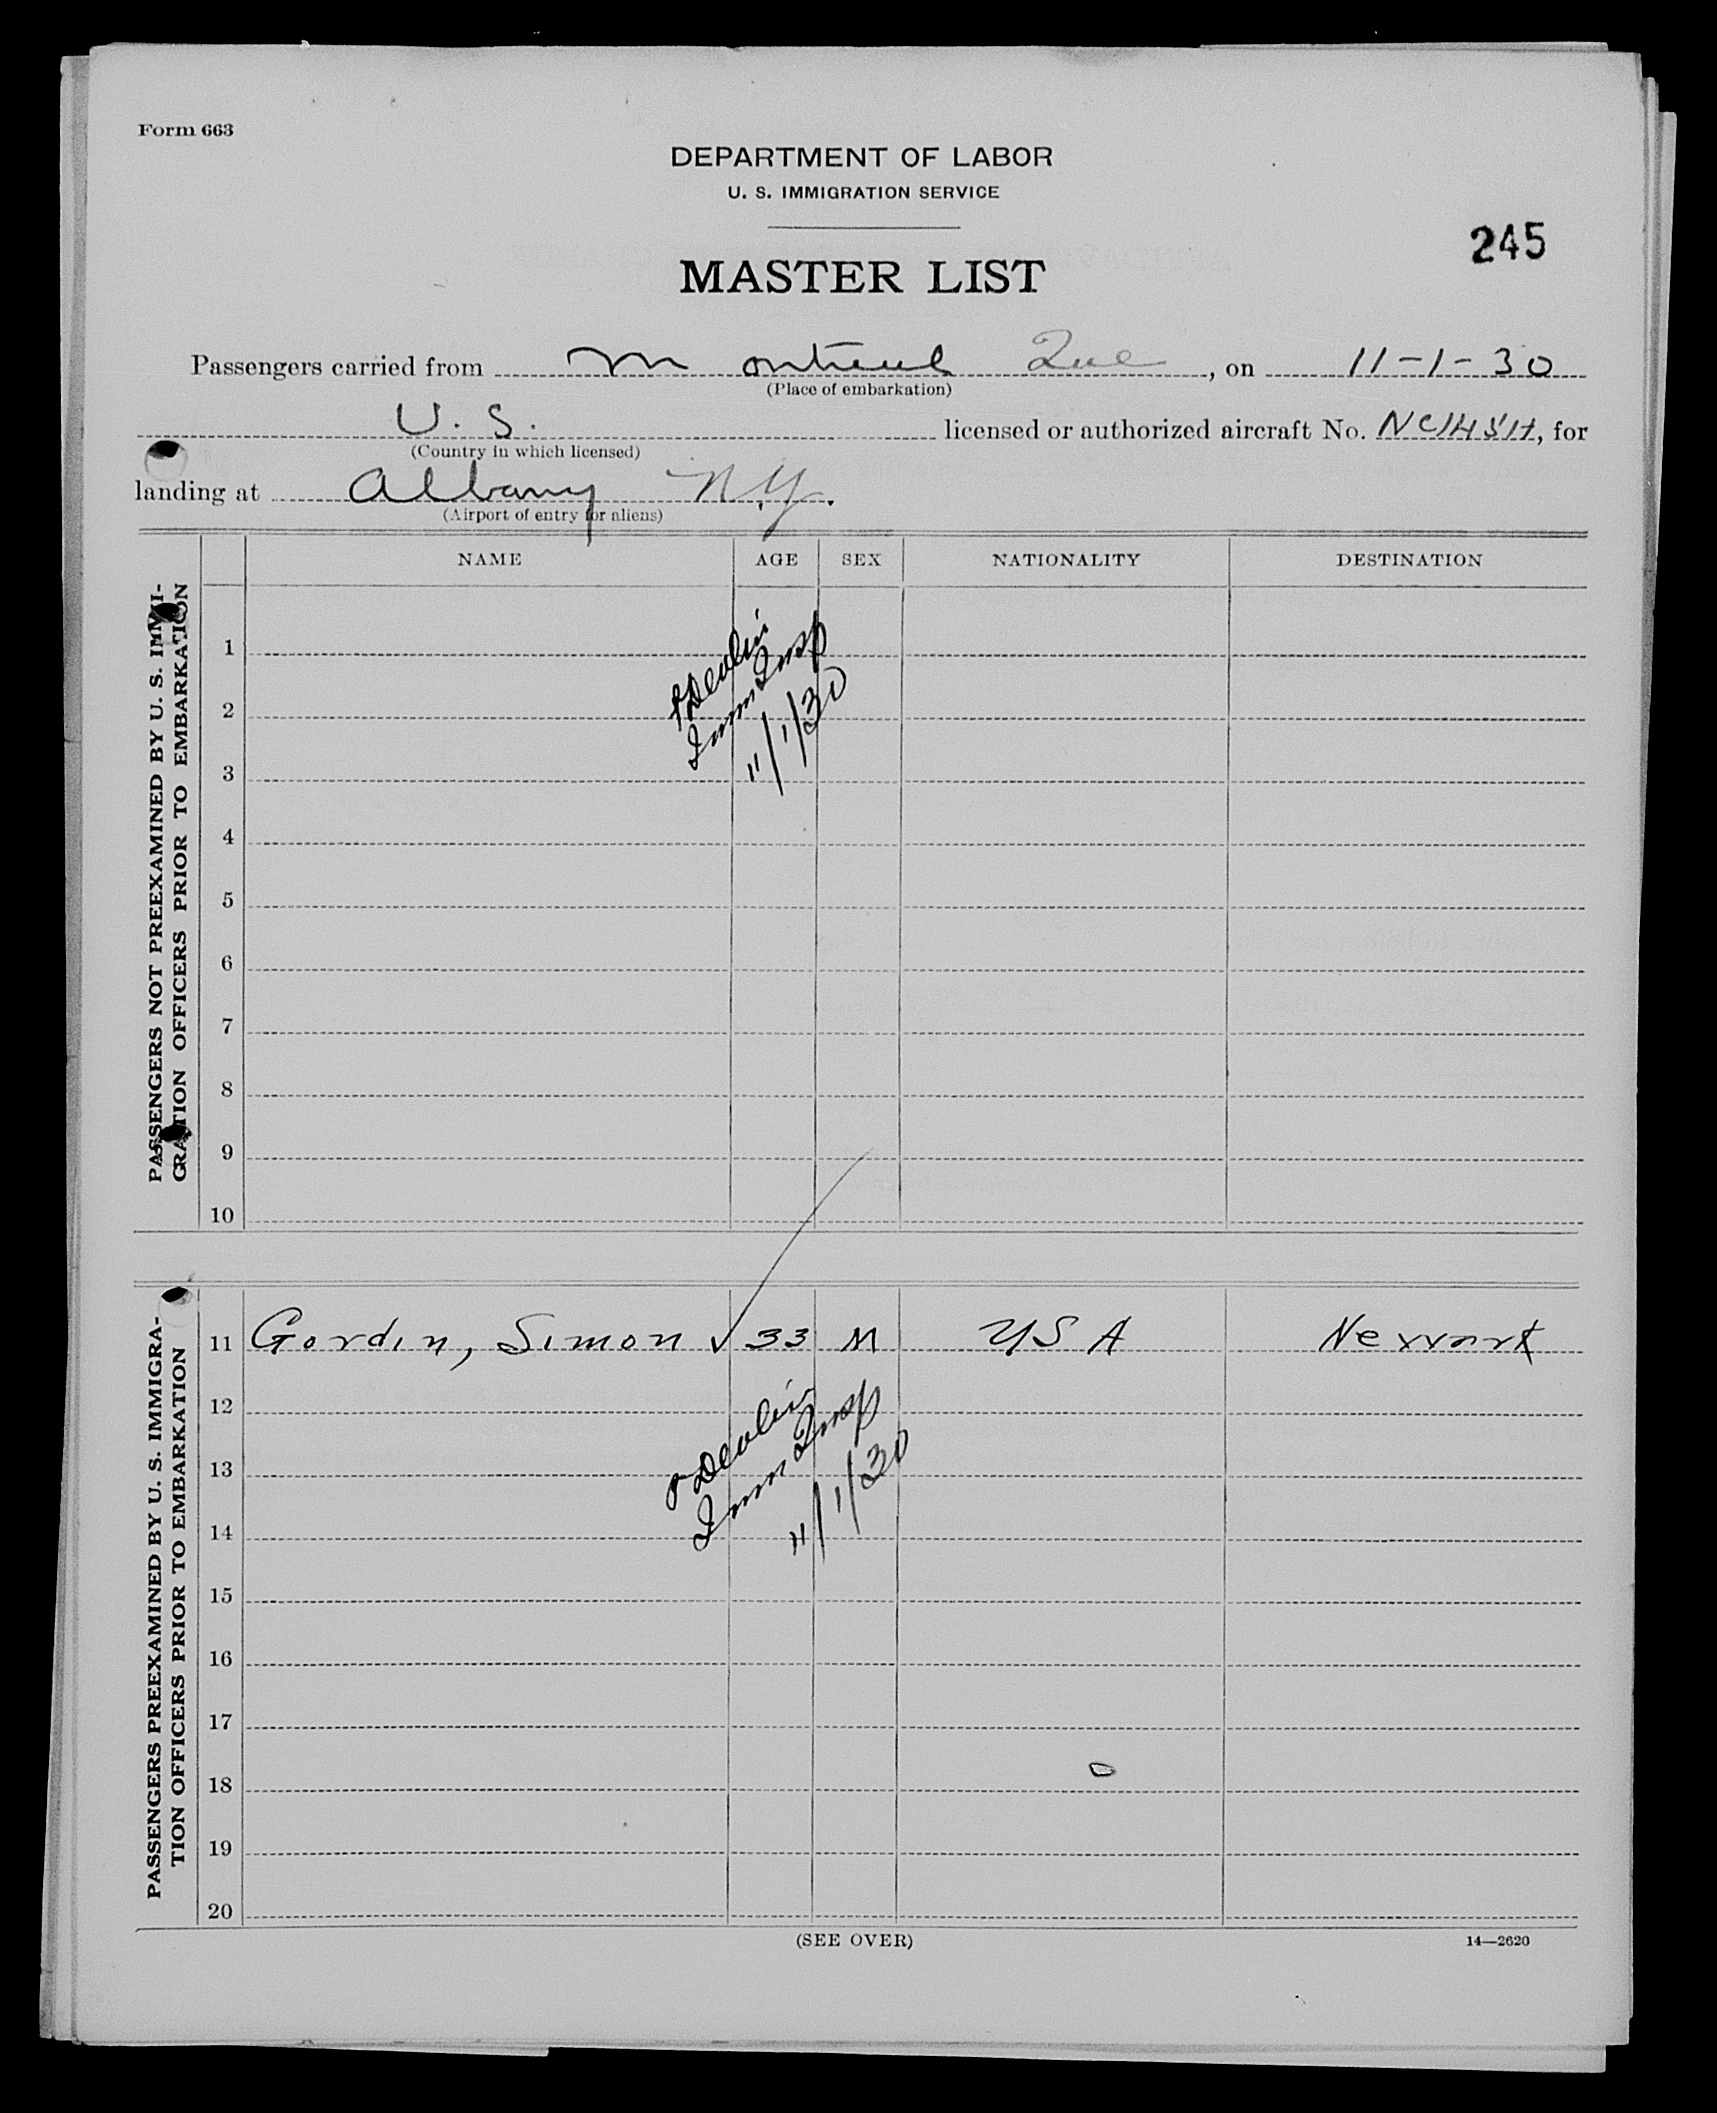 Form 663
DEPARTMENT OF LABOR
U. S. IMMIGRATION SERVICE
245
MASTER LIST
Passengers carried from Montreal Que, on 11-1-30
(Place of embarkation)
U. S. licensed or authorized aircraft No. NC14514, for
(Country in which licensed)
landing at Albany N.Y.
(Airport of entry for aliens)
NAME AGE SEX NATIONALITY DESTINATION
PASSENGERS NOT PREEXAMINED BY U. S. IMMI-
GRATION OFFICERS PRIOR TO EMBARKATION
1
2
3
4
5
6
7
8
9
10
Devlin
Imm Insp
11/1/30
PASSENGERS PREEXAMINED BY U. S. IMMIGRA-
TION OFFICERS PRIOR TO EMBARKATION
11 Gordin, Simon ✓ 33 M USA Newark
12
13
14
15
16
17
18
19
20
Devlin
Imm Insp
11/1/30
(SEE OVER)
14—2620